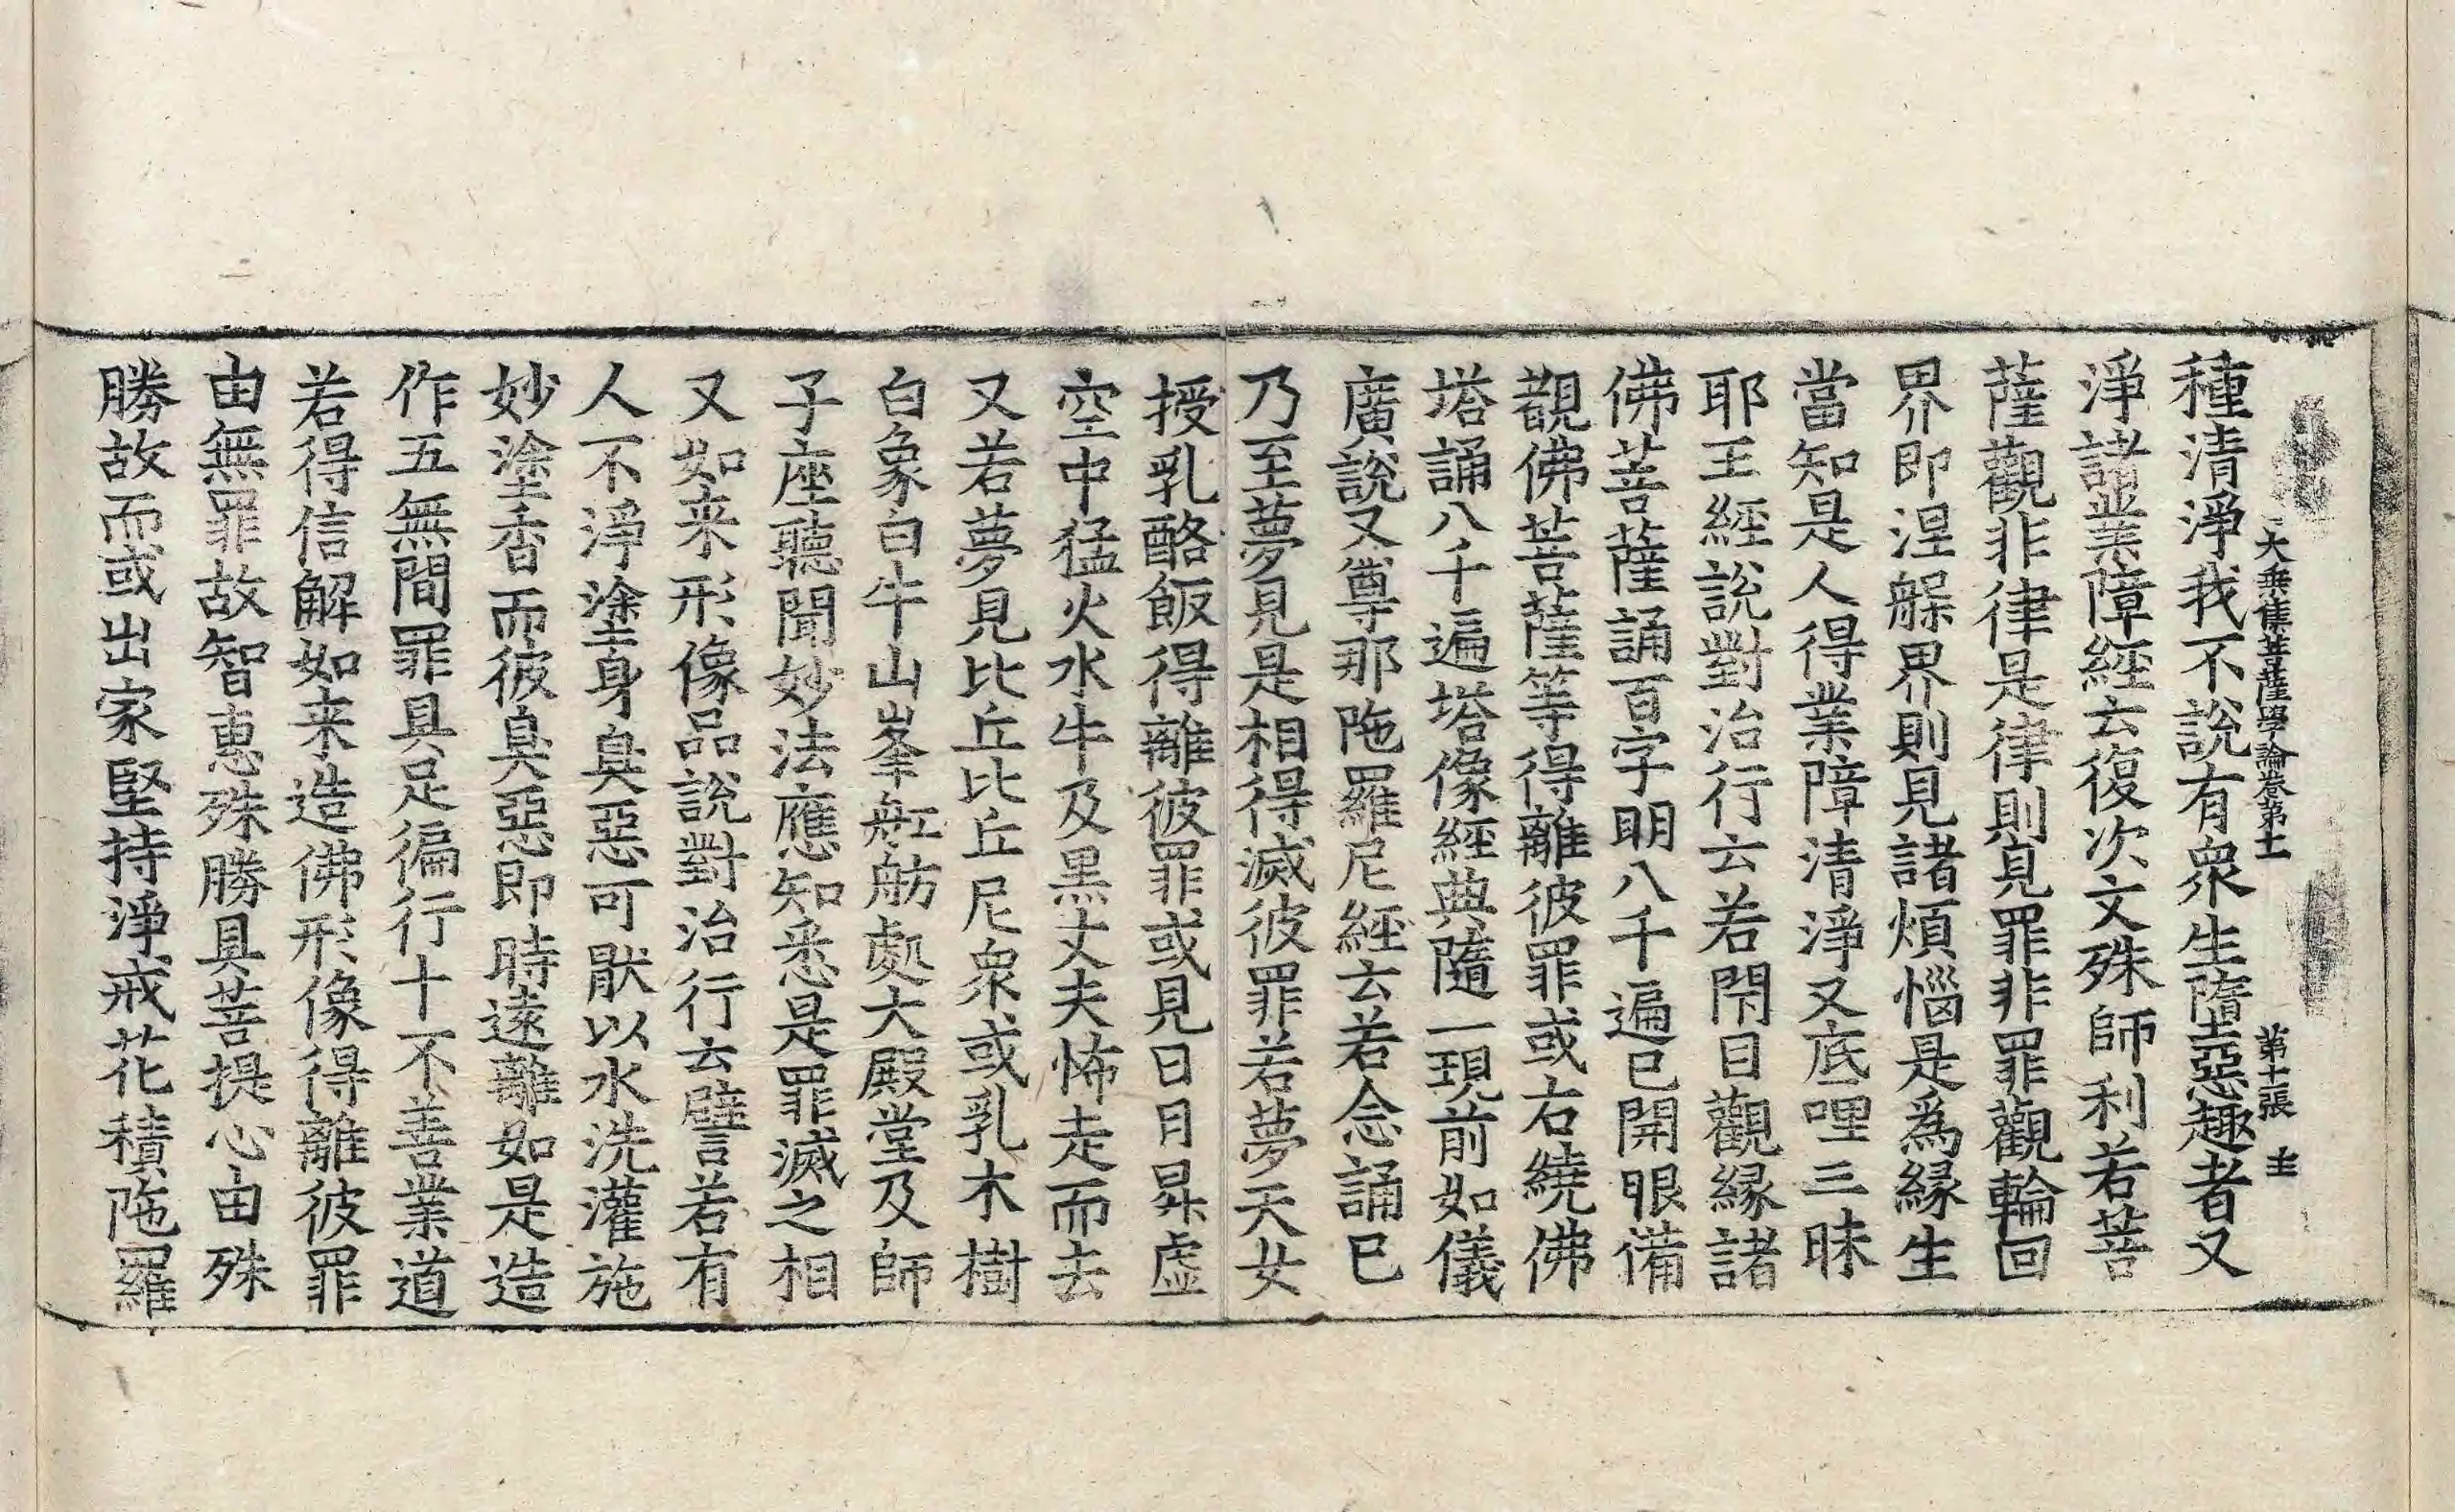 大乗集菩薩學論卷第十一 第十張 圭
種清淨我不說有衆生墮惡趣者又
淨諸業障經云復次文殊師利若菩
薩觀非律是律則見罪非罪觀輪回
界即涅槃界則見諸煩惱是為緣生
當知是人得業障清淨又底哩三昧
耶王經說對治行云若閇目觀緣諸
佛菩薩誦百字明八千遍已開眼備
觀佛菩薩等得離彼罪或右繞佛
塔誦八千遍塔像經典隨一現前如儀
廣說又尊那陁羅尼經云若念誦已
乃至夢見是相得滅彼罪若夢天女
授乳酪飯得離彼罪或見日月昇虛
空中猛火水牛及黑丈夫怖走而去
又若夢見比丘比丘尼衆或乳木樹
白象白牛山峯舡舫處大殿堂及師
子座聽聞妙法應知悉是罪滅之相
又如来形像品說對治行云譬若有
人不淨塗身臭惡可猒以水洗灌施
妙塗香而彼臭惡即時遠離如是造
作五無間罪具足徧行十不善業道
若得信解如来造佛形像得離彼罪
由無罪故智惠殊勝具菩提心由殊
勝故而或出家堅持淨戒花積陁羅